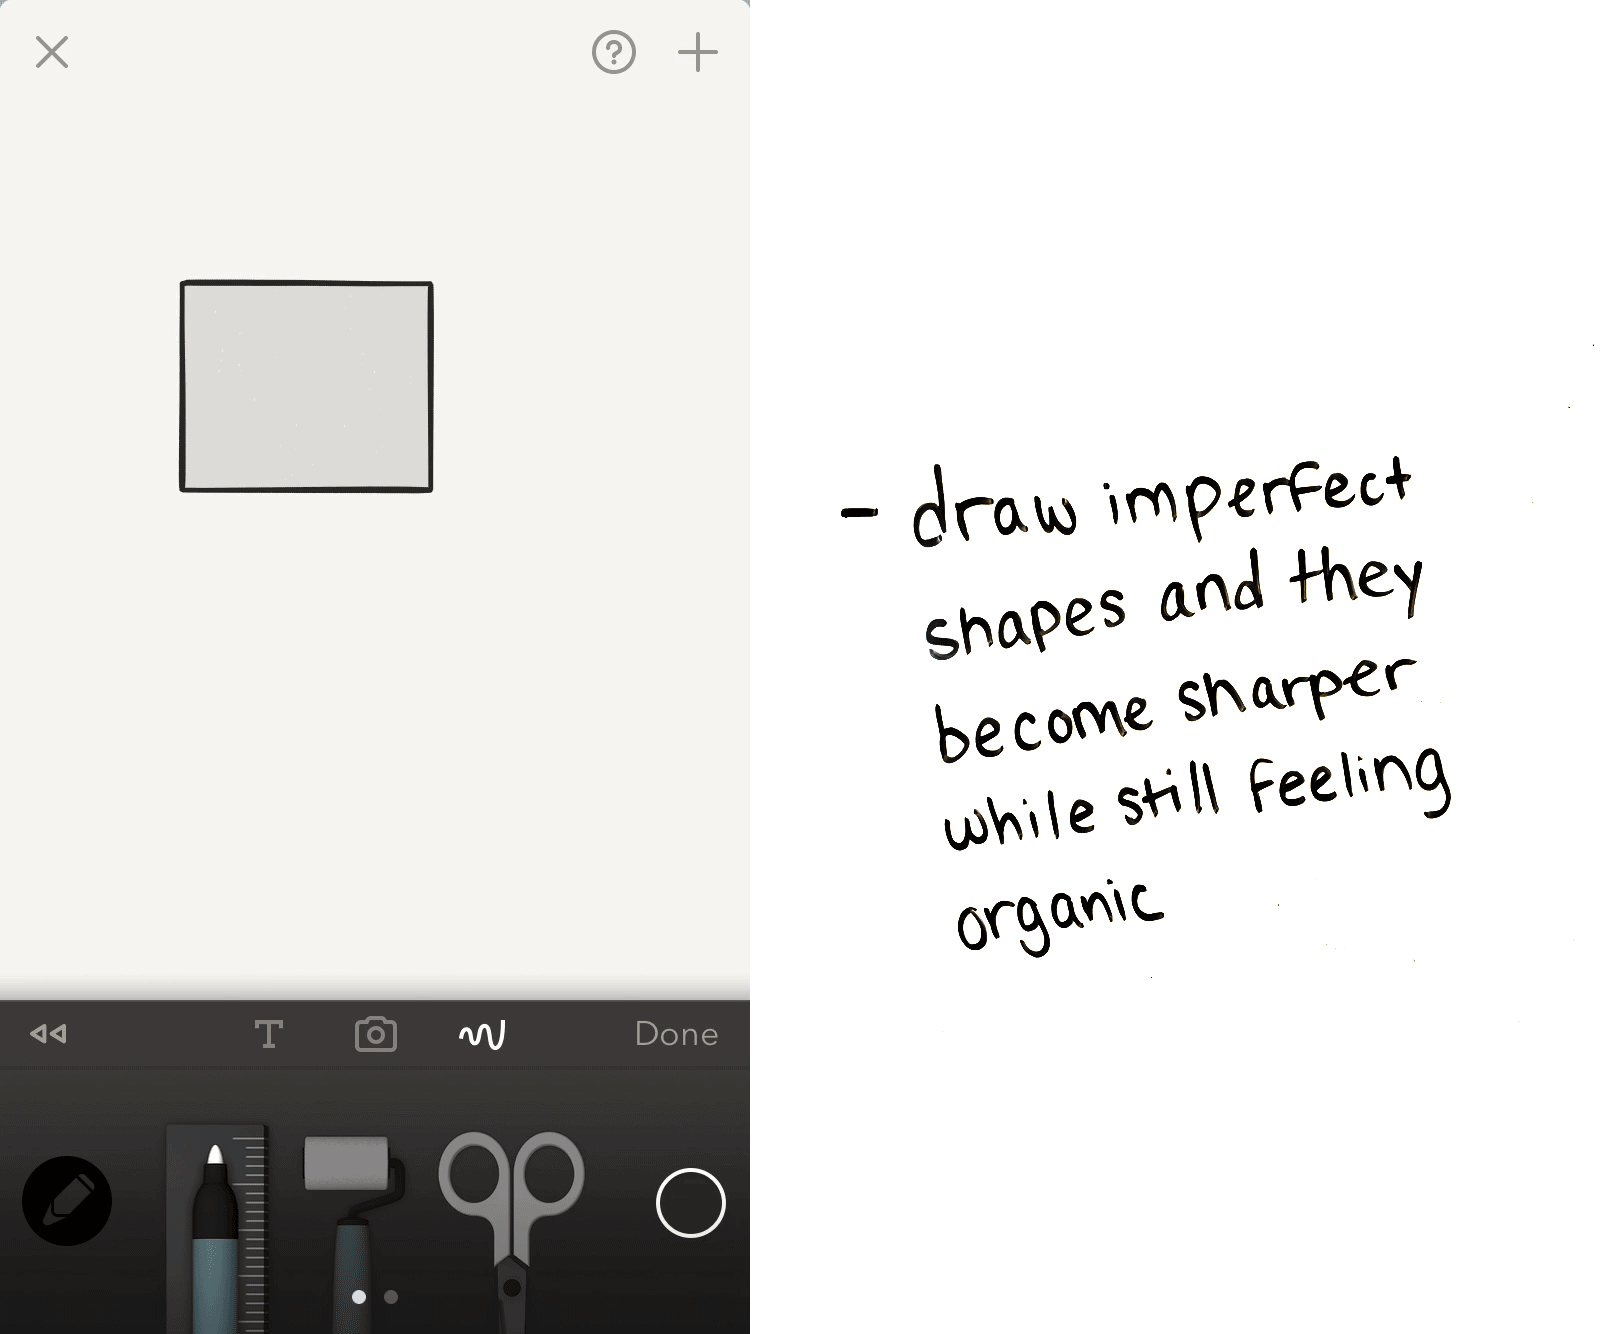 T
Done
- draw imperfect
shapes and they
become sharper
while still feeling
organic